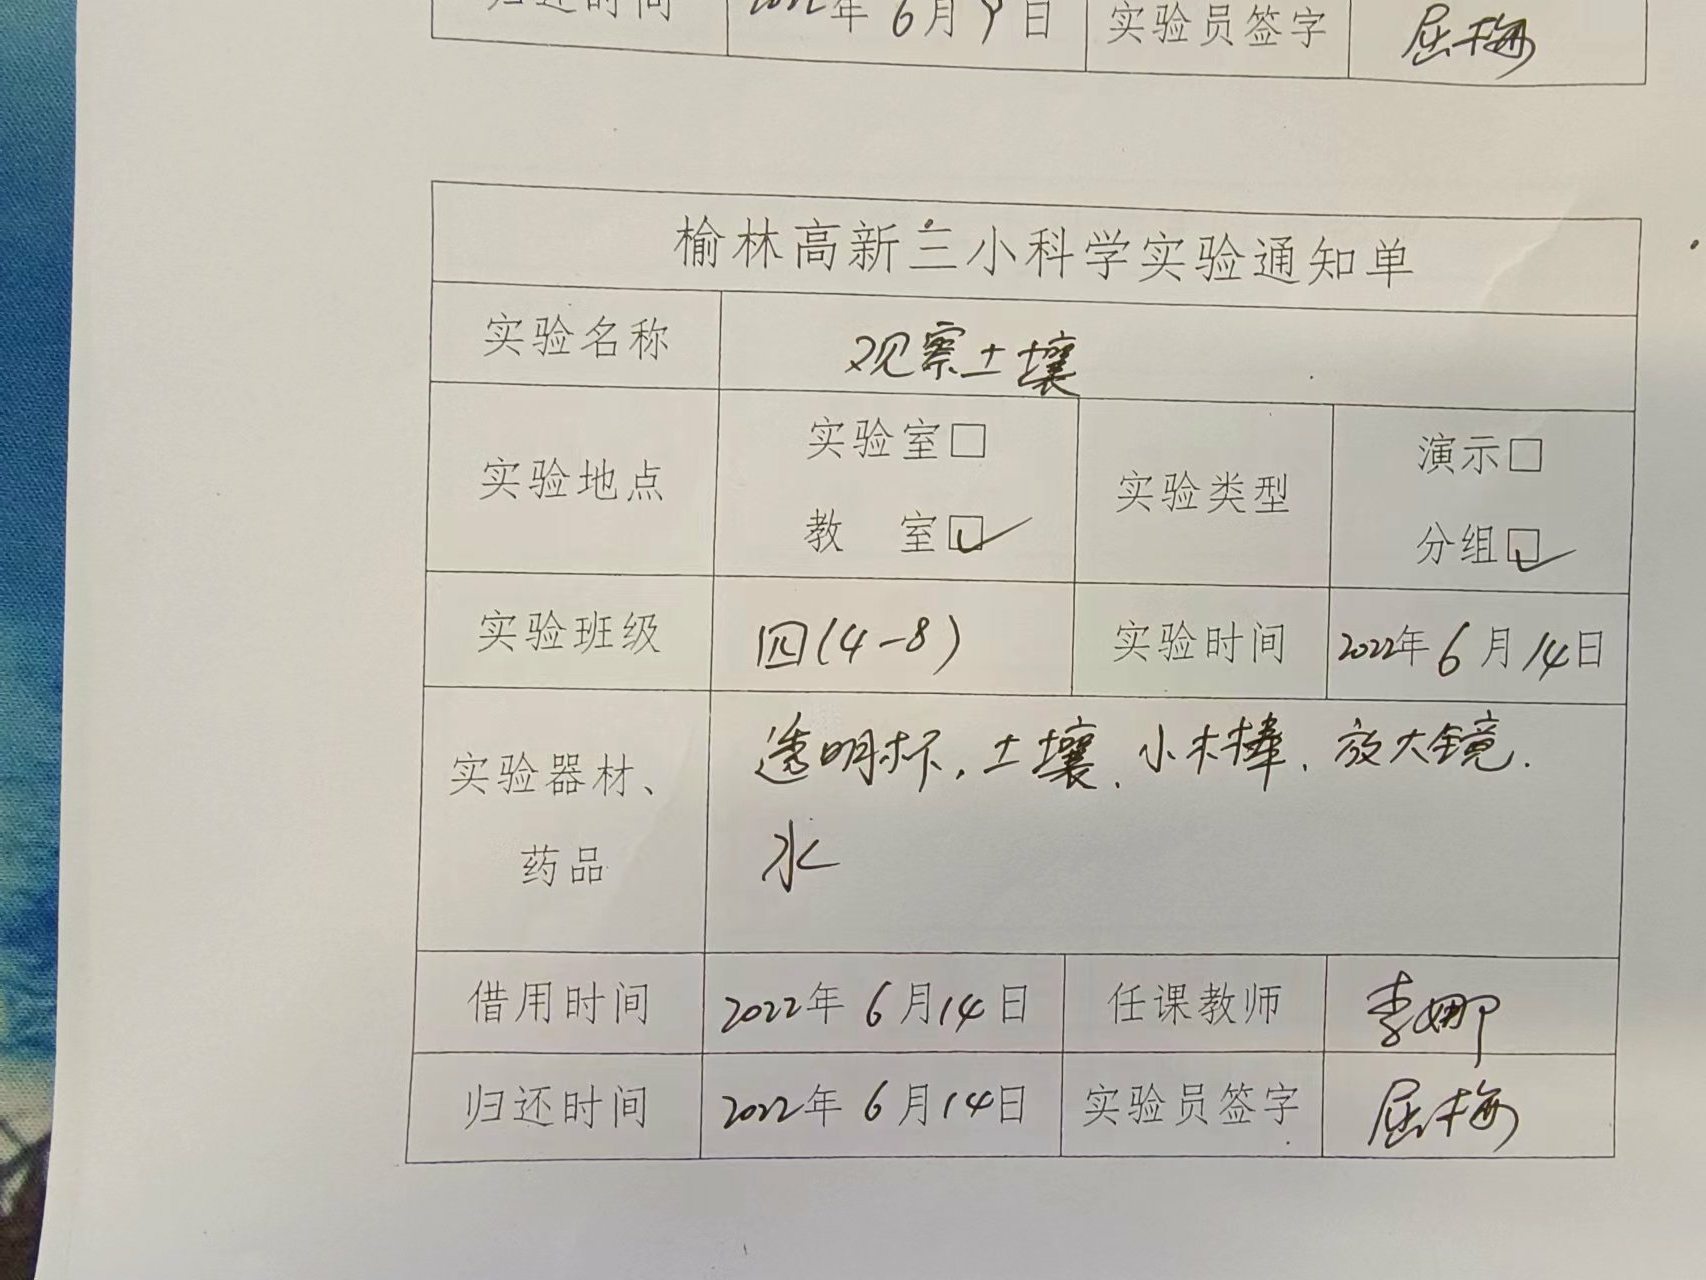 归还时间 2022年6月9日 实验员签字 屈梅
榆林高新三小科学实验通知单
实验名称 观察土壤
实验地点 实验室□ 教 室☑ 实验类型 演示□ 分组☑
实验班级 四(4-8) 实验时间 2022年6月14日
实验器材、药品 透明杯,土壤、小木棒、放大镜.
水
借用时间 2022年6月14日 任课教师 李娜
归还时间 2022年6月14日 实验员签字 屈梅